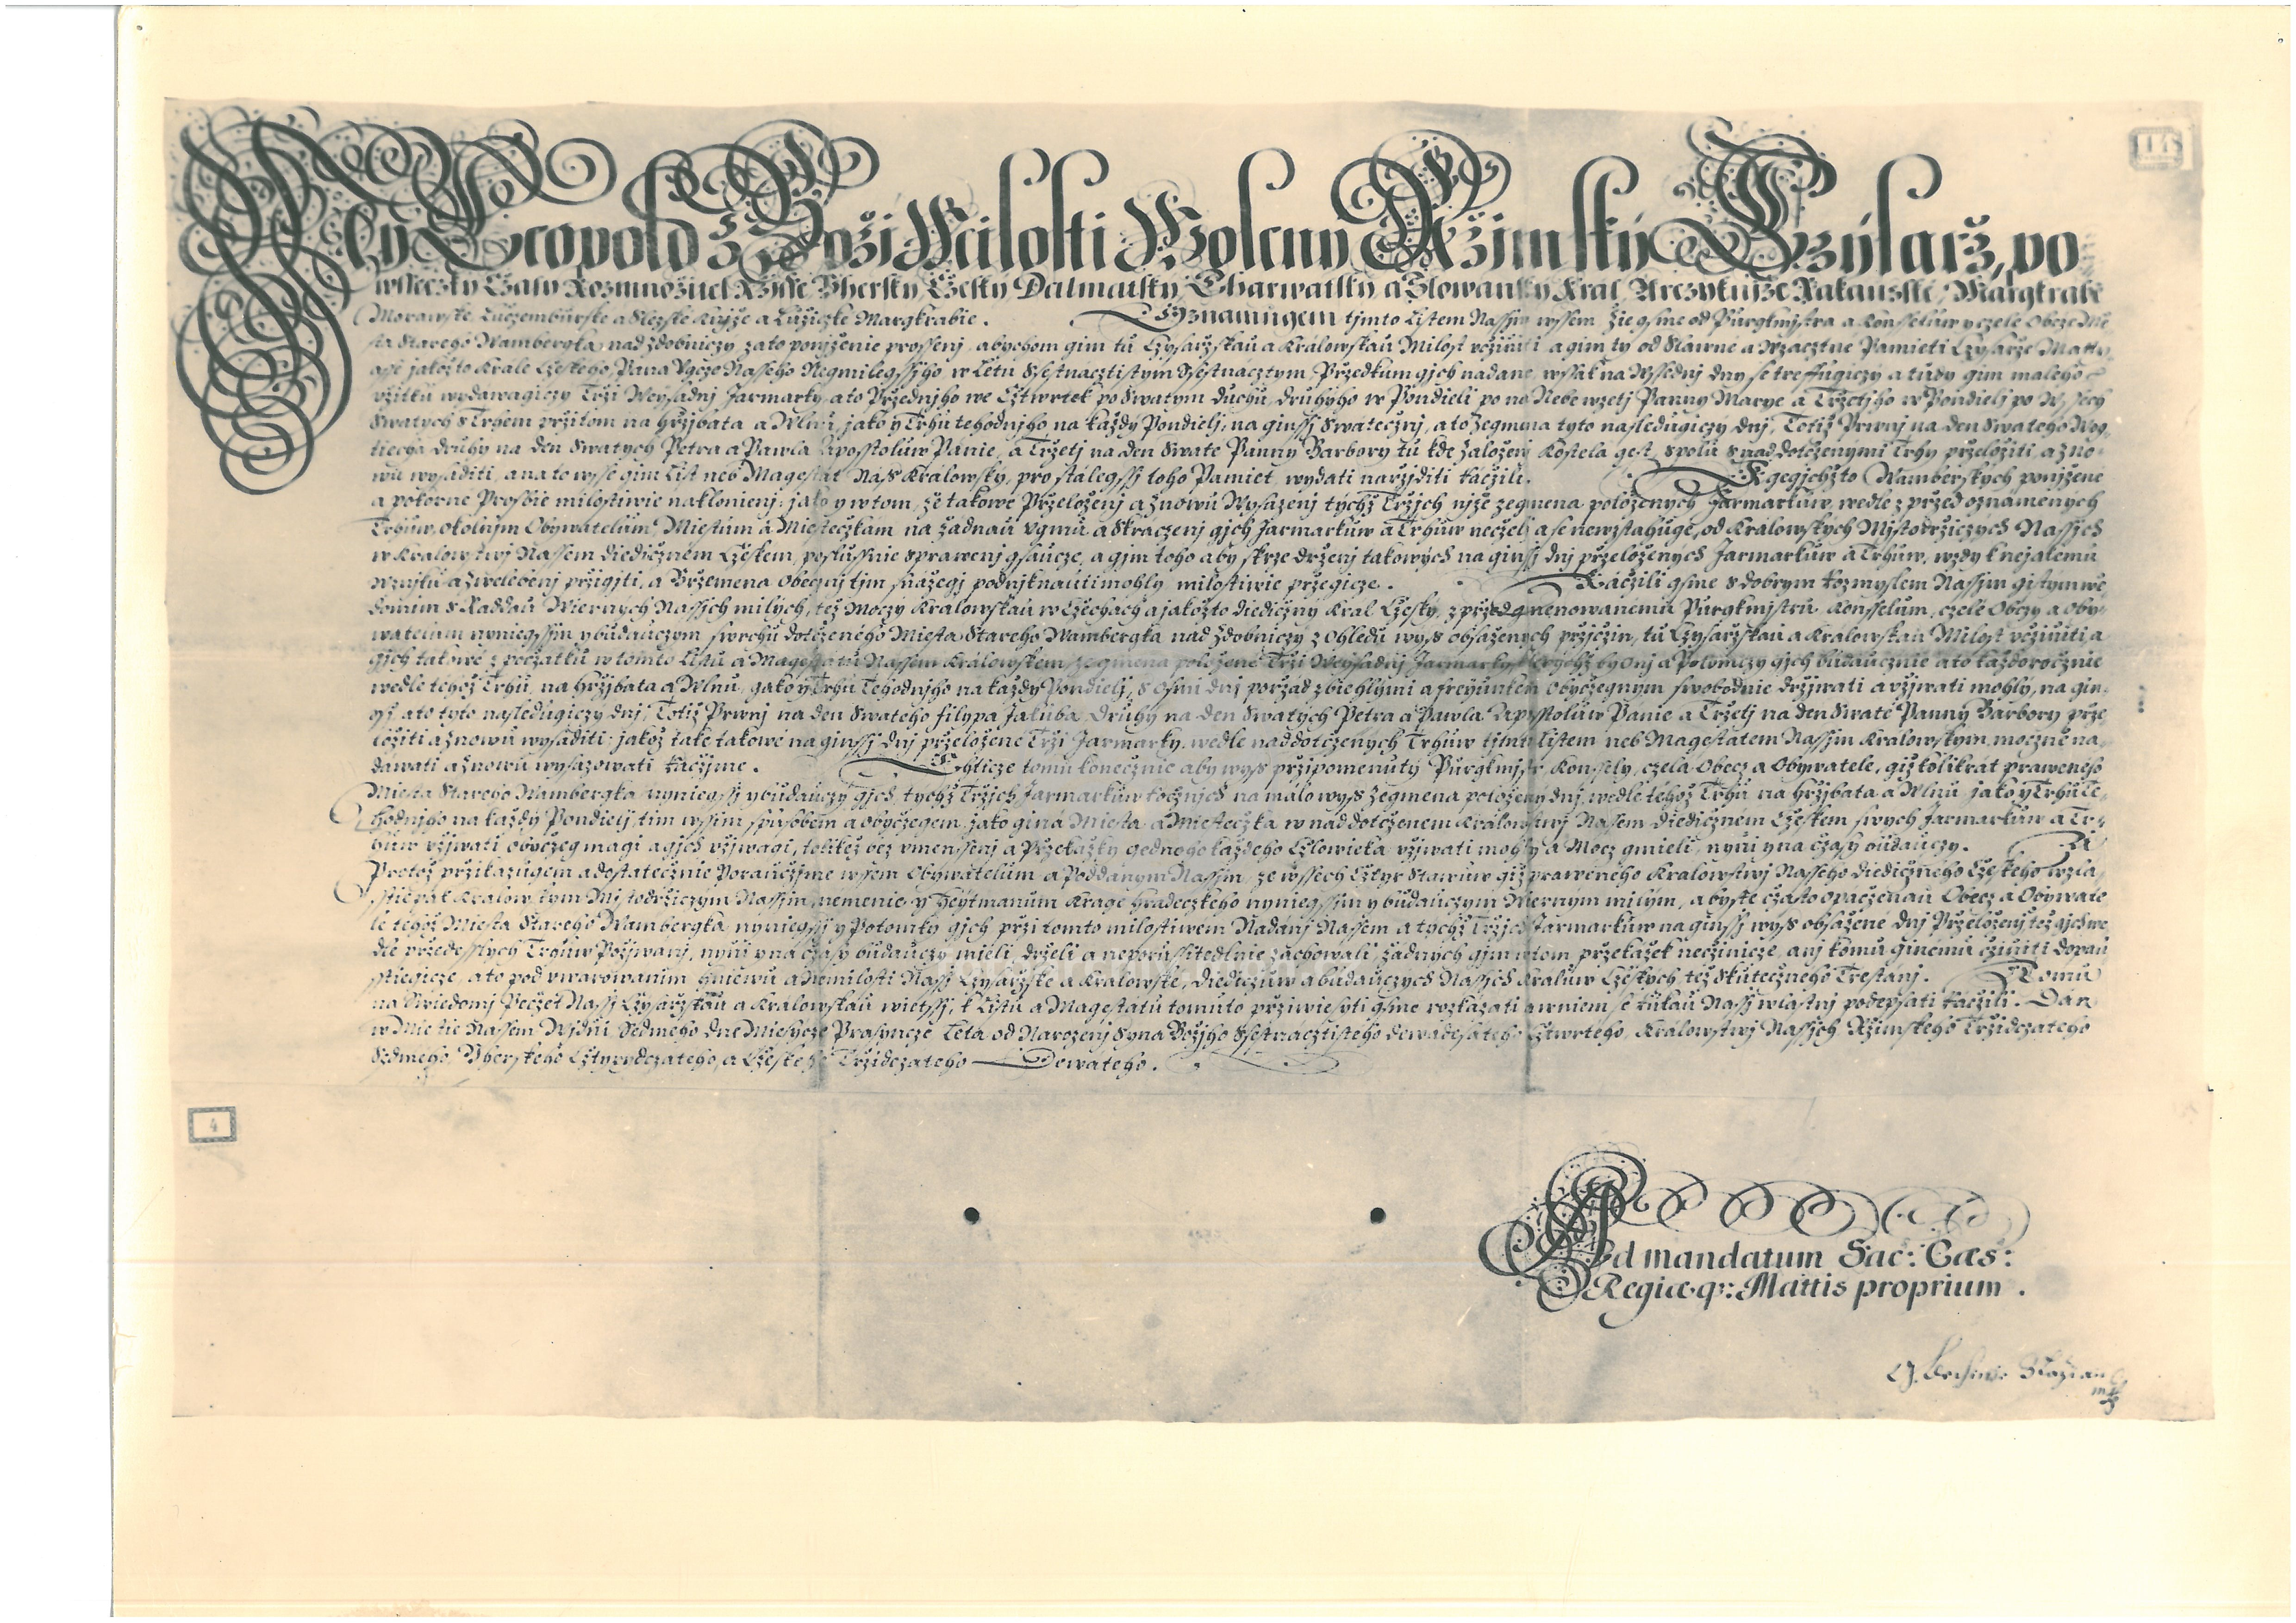 My Leopold z Boži Milosti Wolený Ržimský Czýsarž, po
wsseczky Czasy Rozmnožitel Ržjsse, Uhersky, Czesky, Dalmatsky, Charwatsky, a Slowansky Kral, Arczyknjže Rakauské, Margkrabě
Morawské, Luczemburské a Slezské Knjže a Lužiczké Margkrabie. Wyznawagem tjmto Listem Nassjm wssem, Žie gsme od Purgkmjstra a Konsseluw y czele Obcze Mie
sta Starého Wambergka nad Zdobniczy, za to ponjženie prosseni, abychom gim tu Czysaržskau a Kralowskau Milost vcziniti, a gim ty od Slawné a Wzaczné Pamieti Czysarže Matty
asse jakožto Krale Czeskeho, Pana Vgcze Nasseho Neymilegssjho, w Letu Ssestnacztistym Ssestnacztym Předkum gich nadane, wssak na Wssednj dny se treffugiczy a tudy gim maleho
vžitku wydawagiczy Trži Weyssadnj Jarmarky, a to Pržednjho we Cžtwrtek po Swatym Duchu, druhyho w Pondieli po na Nebe wzetj Panny Marye a Tržetjho w Pondielj po Wssech
Swatych s Trhem pržitom na Hržjbata a Wlnu, jako y Trhu tehodnjho na každy Pondielj, na ginssj Swatecznj, a to Zegmena tyto nasledugiczy dnj, Totiž Prwnj na den Swateho Woy„
tiecha, druhy na den Swatych Petra a Pawla Aposstoluw Panie, a Tržetj na den Swate Panny Barbory tu kde založenj Kostela gest, spolu s naddotčzenymi Trhy przeložiti, a zno„
wu wysaditi, a na to wsse gim List neb Magestat Naš Kralowsky, pro stalegssj toho Pamiet, wydati naržjditi račzili. K gegichžto Wamberskych ponjžene
a pokorne Prosbie milostiwie naklonieni, jako y w tom, že takowe Przeloženj a znowu Wysazenj tychž Tržjch njže zegmena položenych Jarmarkuw, wedle z przed oznamenych
Trhuw, okolnjm Obywatelum, Miestum a Miesteczkam na žadnau vgmu a Skraczenj gich Jarmarkuw a Trhuw neczelj a se newztahuge, od Kralowskych Mjstodržiczych Nassjch
w Kralowstwj Nassem diediczném Czeském, posslussnie Sprawenj gsaucze, a gjm toho aby skrze drženj takowych na ginssj dnj przeloženych Jarmarkuw a Trhuw, wzdy k nejakemu
wznjku a zwelebenj prżigjti, a Bržemena Obecznj tjm snažegj podniknauti mohly, milostiwie przegicze. Račzili gsme s dobrym Rozmyslem Nassjm gistym we„
domim s Raddau Wiernych Nassjch milych, též Moczy Kralowskau w Czechach a jakožto diediczny Kral Czesky, z przed gmenowanemu Purgkmjstru, Konsselum, czele Obczy a Oby„
watelum nyniegssjm y budauczym swrchu dotczeneho Miesta Stareho Wambergka nad Zdobniczy z Ohledu wyš obsaženych prziczin, tu Czysaržskau a Kralowskau Milost vcziniti a
gich takowé z poczatku w tomto Listu a Magestatu Nassem Kralowskem zegmena položené Trži Weyssadnj Jarmarky, kterychž by Onj a Potomczy gich budauczně a to každorocznie
wedle tehož Trhu, na Hržjbata a Wlnu, gako y Trhu Tehodnjho na každy Pondielj, s Osmi dnj poržad zbiehlymi a freyunkem Obyczegnym swobodnie držjwati a vžjwati mohly, na gin„
ssj, a to tyto nasledugiczy dnj, Totiž Prwnj na den Swateho Filypa Jakuba, Druhy na den Swatych Petra a Pawla Aposstoluw Panie a Tržetj na den Swaté Panny Barbory prze
ložiti a znowu wysaditi, jakož také takowé na ginssj dnj przeložené Trži Jarmarky, wedle naddotczenych Trhuw tjmto Listem neb Magestatem Nassjm Kralowskym, moczně na„
dawati a znowu wysazowati račzjme. Chticze tomu konecznie aby wyš pržipomenuty Purgkmjstr, Konssely, czela Obecz a Obywatele, giž kolikrat praweného
Miesta Stareho Wambergka, nyniegssj y budauczy gich, tychž Tržjch Jarmarkuw rocznjch na malo wyš zegmena položeny dnj, wedle tehož Trhu na Hržjbata a Wlnu, jako y Trhu Te„
hodnjho na každy Pondielj, tim wssim spusobem a obyczegem, jako gina Miesta a Miesteczka w naddotczenem Kralowstwj Nassem diediczném Czeském swych Jarmarkuw a Tr„
huw vžjwati obyczeg magi a gich vžjwagi, tolikéž bez vmenssenj a Pržekažky gednoho každeho Czlowieka vžjwati mohly a Mocz gmieli, nynj y na Czasy budauczy. A
Protož pržikazugem a dostateczně Porauczjme wssem Obywatelum a Poddanym Nassjm, ze wssech Cztyr Stawuw giž praweného Kralowstwj Nasseho diediczného Czeskeho, wzla„
sstie pak Kralowskym Mjstodržiczym Nassjm, nemenie y Heytmanum Krage Hradeczkého nyniegssjm y budauczym Wiernym milym, abyste czasto opaczenau Obecz a Obywate
le tehož Miesta Stareho Wambergka, nyniegssj y Potomky gich pržitomto milostiwem Nadanj Nassem a tychž Tržjch Jarmarkuw na ginssj wyš obsažené dnj Przeloženj též gich we„
dle pržedesslych Trhuw Požjwanj, nynj y na czasy budauczy mieli, drželi a neporussitedlnie zachowali, žadnych gjm w tom pržekažek neczinicze, anj komu ginému cziniti dopau
sstiegicze, a to pod vwarowanim hniewu a Nemilosti Nassj Czysaržské a Kralowské, diediczuw a budauczych Nassjch Kraluw Czeskych, též Skuteczného Trestanj. Tomu
na Swiedomj Peczet Nassj Czysaržskau a Kralowskau wietssj, k Listu a Magestatu tomuto pržiwiesyti gsme rozkazati a w niem se rukau Nassj wlastnj podepsati račzili. Dan
w Miestie Nassem Wjdni Sedmeho dne Miesycze Prasyncze Leta od Narozenj Syna Božjho Ssestnacztisteho dewadesateho cztwrteho, Kralowstwj Nassjch Ržimskeho Tržidczateho
Sedmeho, Uherskeho Cztyrydczateho, a Czeskeho Tržidczateho Dewateho.
4
Ad mandatum Sac: Caes:
Regiaeq: Mattis proprium.